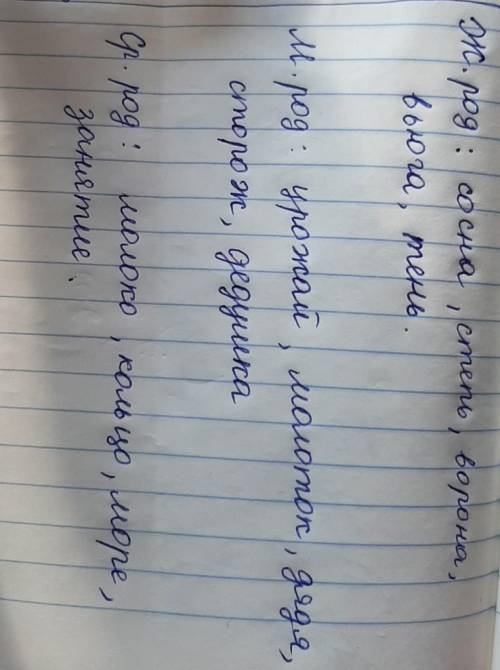 Ж. род: сосна, степь, ворона,
вьюга, тень.
М. род: урожай, молоток, дядя,
сторож, дедушка
Ср. род: молоко, кольцо, море,
занятие.